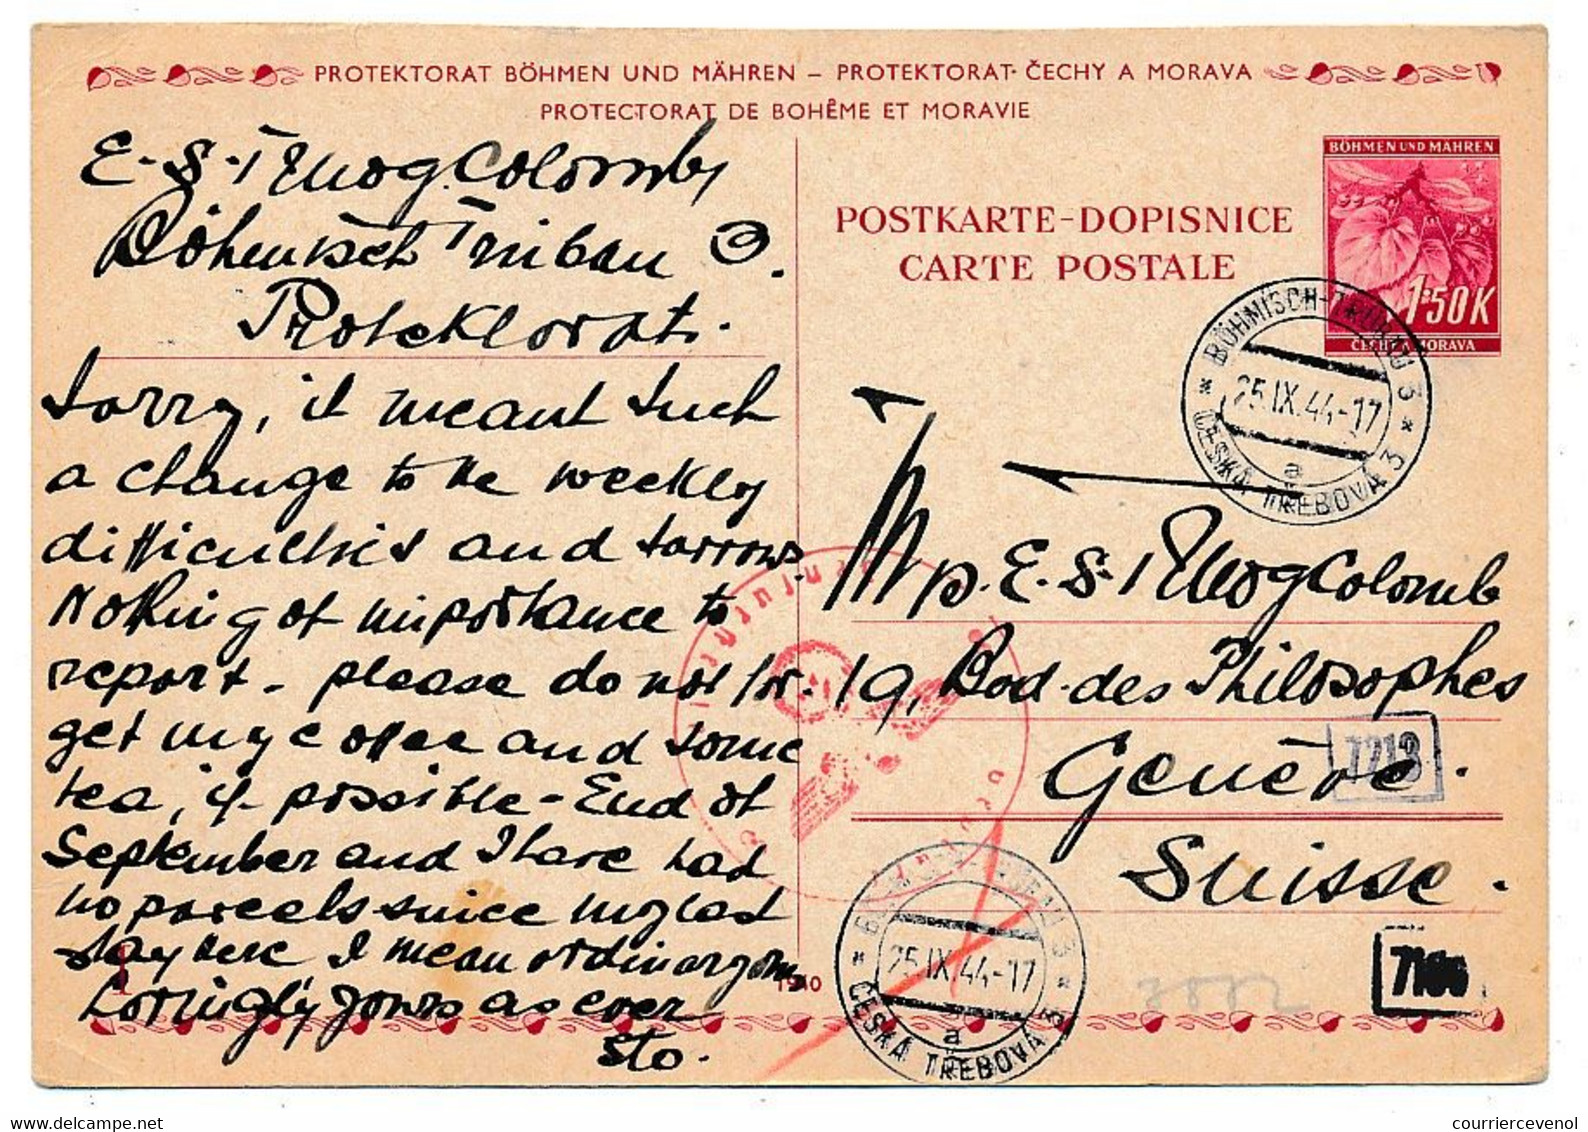 PROTEKTORAT BÖHMEN UND MÄHREN – PROTEKTORAT ČECHY A MORAVA
PROTECTORAT DE BOHÊME ET MORAVIE
E. S. Colomb
Böhmisch Trübau 3.
Protektorat.
Sorry, it meant such
a change to the weekly
difficulties and sorrows.
Nothing of importance to
report - please do not for-
get my coffee and some
tea, if possible - End of
September and I have had
no parcels since my last
stay here I mean ordinary ones
Lovingly yours as ever
Sto.
1
1940
BÖHMEN UND MÄHREN
1·50K
ČECHY A MORAVA
POSTKARTE-DOPISNICE
CARTE POSTALE
BÖHMISCH-TRÜBAU 3
25.IX.44-17
a
ČESKÁ TŘEBOVÁ 3
E. S. Colomb
19, Bod. des Philosophes
Genève.
7213
Suisse.
BÖHMISCH-TRÜBAU 3
25.IX.44-17
a
ČESKÁ TŘEBOVÁ 3
www.delcampe.net
courriercevenol